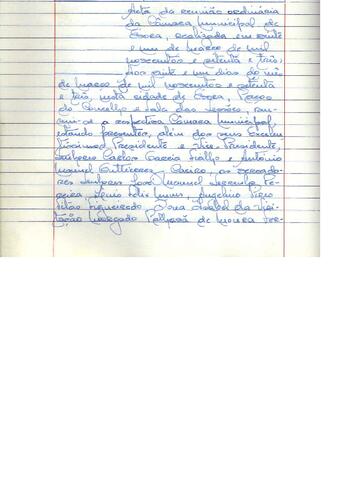 Acta da reunião ordinária
da Câmara Municipal de
Évora, realizada em vinte
e um de Março de mil
novecentos e setenta e três.
Aos vinte e um dias do mês
de Março de mil novecentos e setenta
e três, nesta cidade de Évora, Paços
do Concelho e sala das sessões, reu-
niu-se a respectiva Câmara Municipal,
estando presentes, além dos seus Excelen-
tíssimos Presidente e Vice-Presidente,
Senhores Carlos Garcia Fialho e António
Manuel Gutierres Cneiro, os vereado-
res Senhores José Manuel Pe-
reira, Félix Nunes,
Figueiredo, Dona Isabel da Visi-
tação Morgado de Moura For-